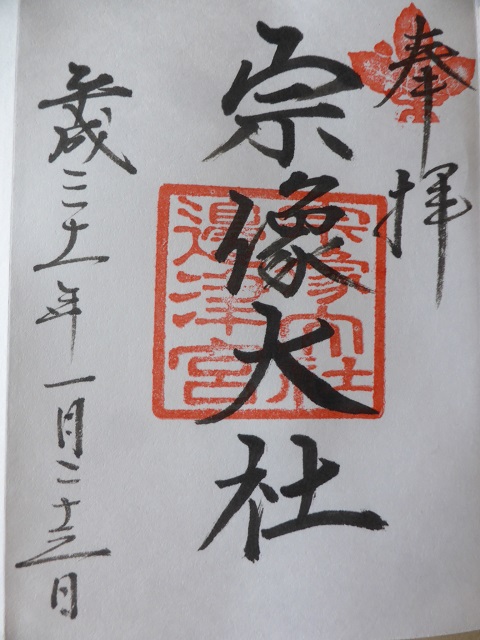 奉拝
宗像大社
宗像大社
邊津宮
平成三十一年一月二十三日